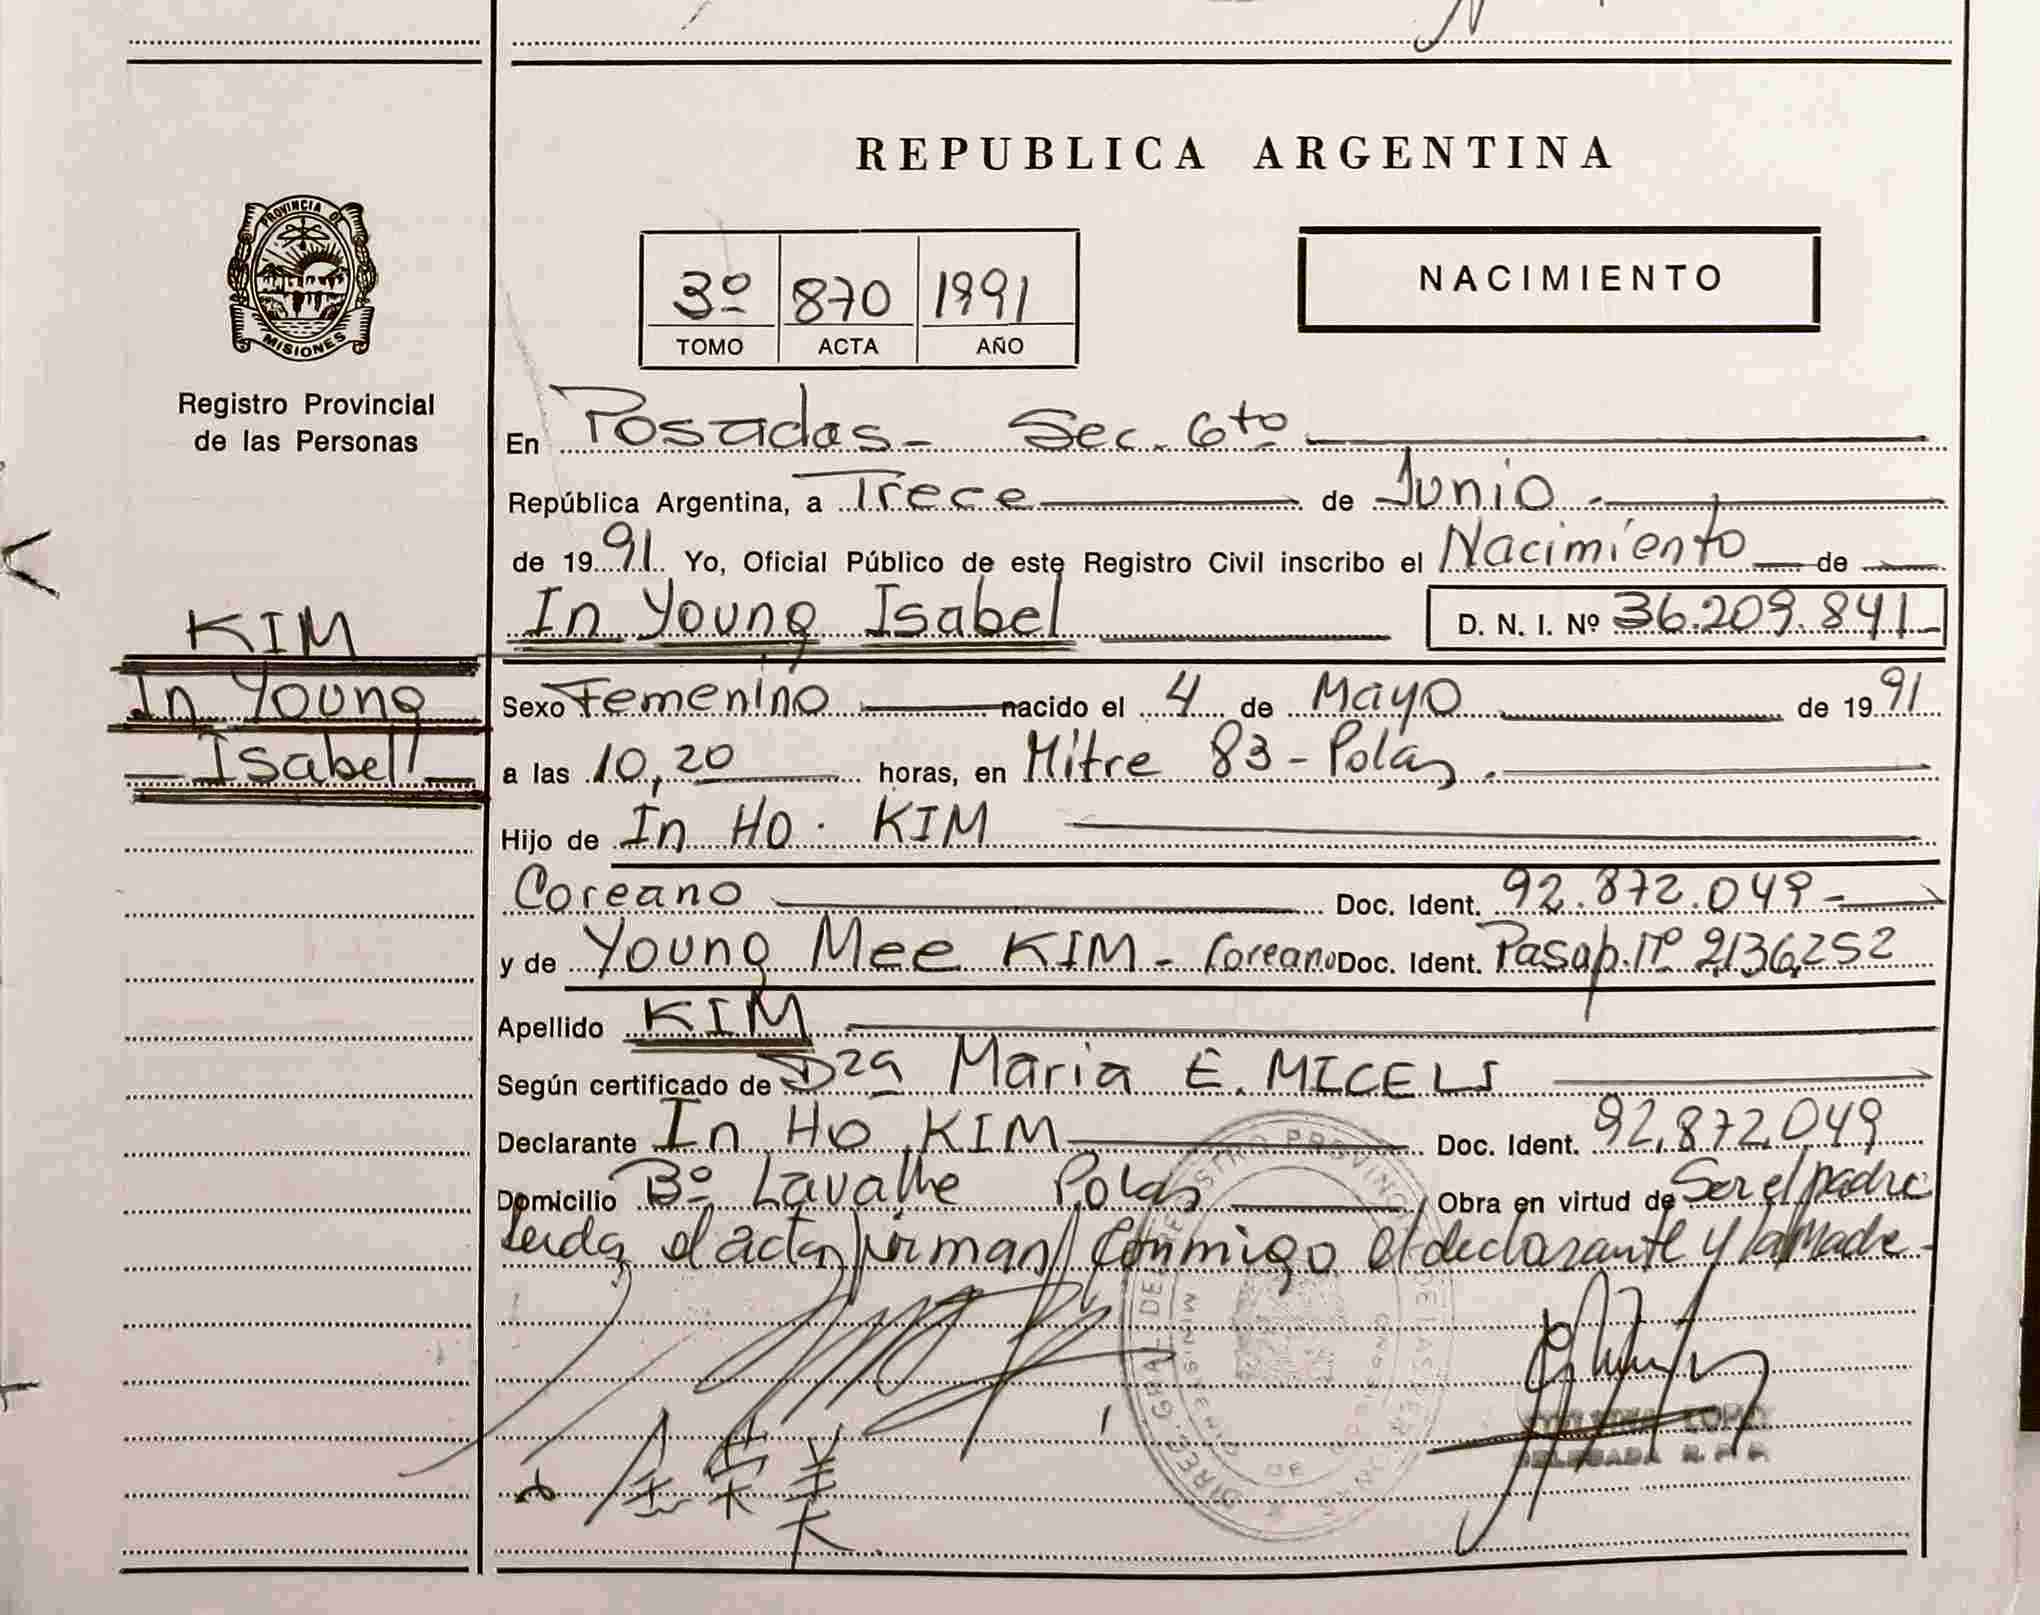 REPUBLICA ARGENTINA
PROVINCIA DE
MISIONES
Registro Provincial
de las Personas
3º 870 1991
TOMO ACTA AÑO
NACIMIENTO
En Posadas - Sec. 6to
República Argentina, a Trece de Junio
de 1991 Yo, Oficial Público de este Registro Civil inscribo el Nacimiento de
In Young Isabel D. N. I. Nº 36.209.841
KIM
In Young
Isabel
Sexo Femenino nacido el 4 de Mayo de 1991
a las 10,20 horas, en Mitre 83 - Pdas.
Hijo de In Ho KIM
Coreano Doc. Ident. 92.872.049
y de Young Mee KIM - Coreano Doc. Ident. Pasap. nº 2136252
Apellido KIM
Según certificado de Dra Maria E. MICELI
Declarante In Ho KIM Doc. Ident. 92.872.049
Domicilio Bº Lavalle Pdas Obra en virtud de Ser el padre
Leida el acta firman conmigo el declarante y la Madre -
金 榮 美
DELEGADA R. P. P.